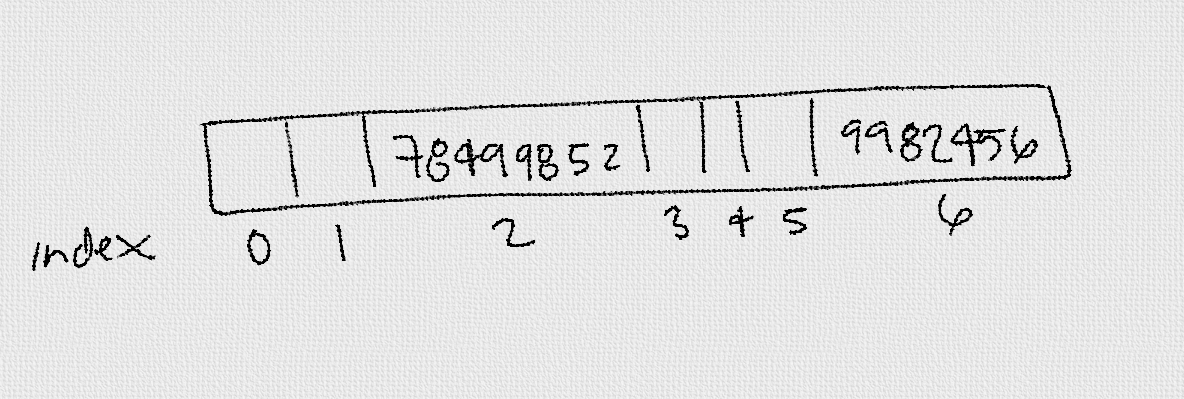 78499852 9982456
index 0 1 2 3 4 5 6